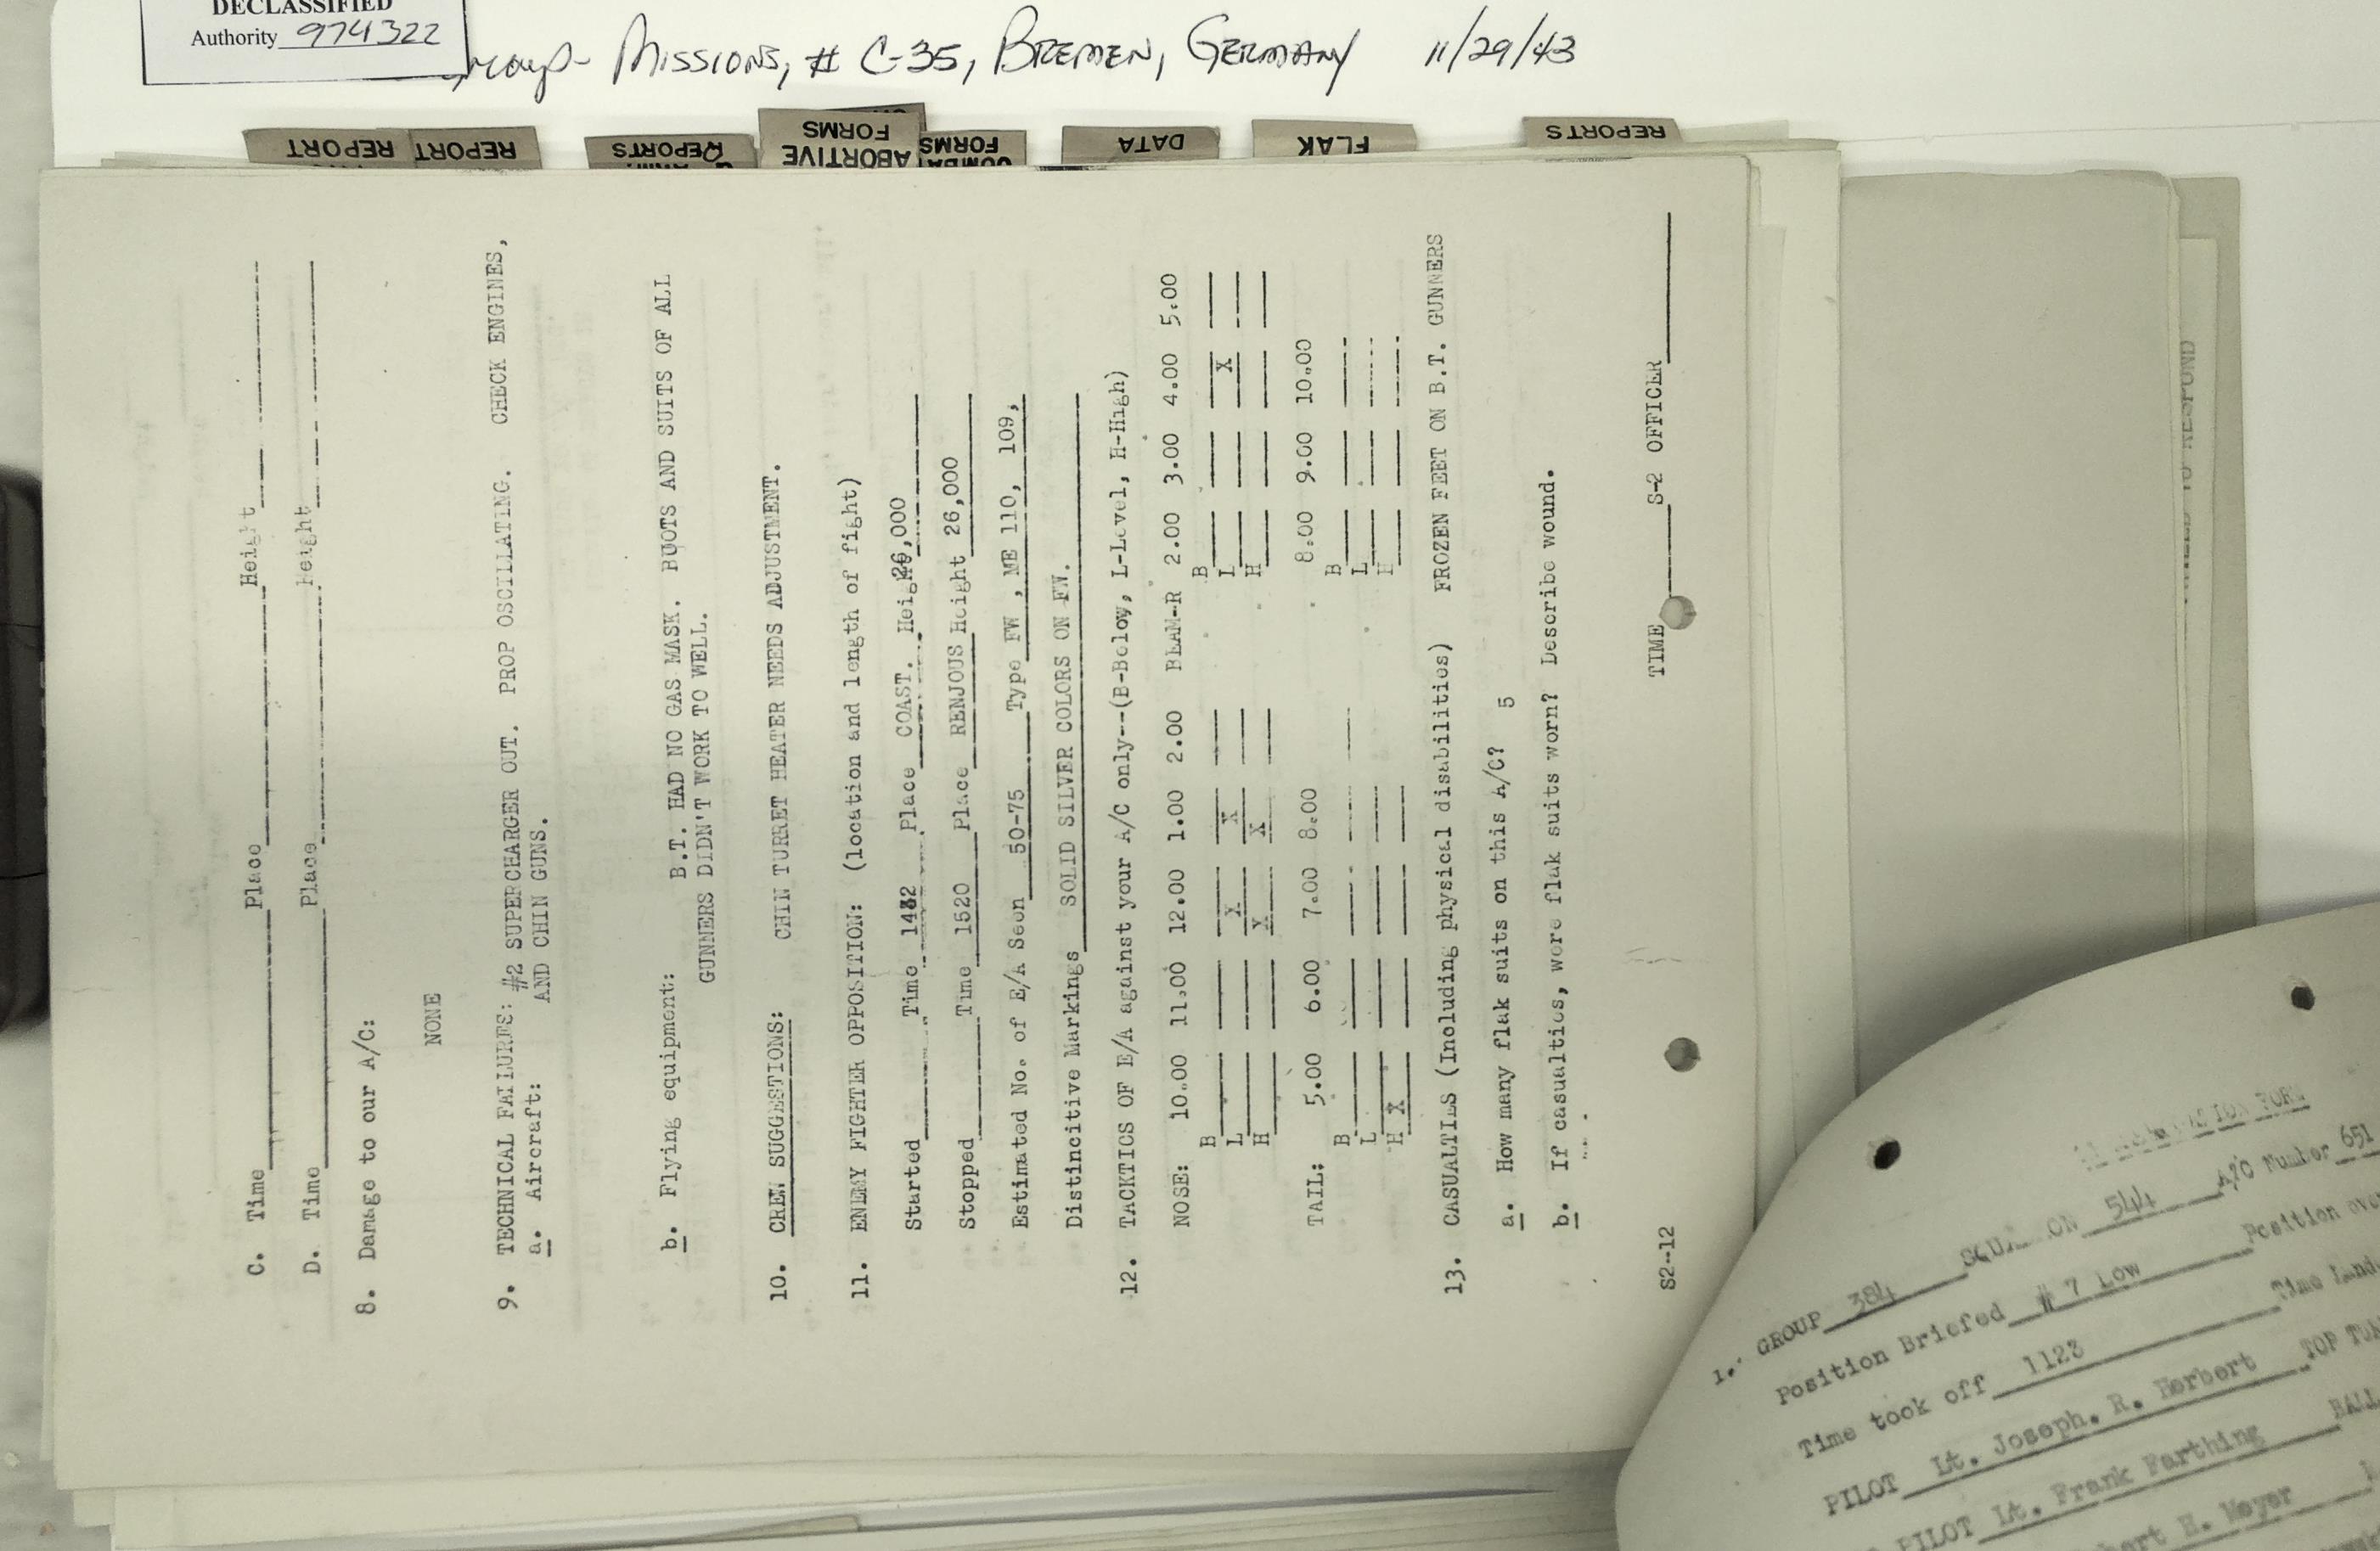 DECLASSIFIED
Authority 974322
Group- Missions, # C-35, Bremen, Germany 11/29/43
REPORT
REPORT
REPORTS
ABORTIVE
FORMS
COMBAT
FORMS
DATA
FLAK
REPORTS
C. Time Place Height
D. Time Place Height
8. Damage to our A/C:
NONE
9. TECHNICAL FAILURES: #2 SUPERCHARGER OUT. PROP OSCILLATING. CHECK ENGINES,
a. Aircraft: AND CHIN GUNS.
b. Flying equipment: B.T. HAD NO GAS MASK. BUOTS AND SUITS OF ALL
GUNNERS DIDN'T WORK TO WELL.
10. CREW SUGGESTIONS: CHIN TURRET HEATER NEEDS ADJUSTMENT.
11. ENEMY FIGHTER OPPOSITION: (location and length of fight)
Started Time Place COAST. Height 26,000
Stopped Time 1520 Place RENJOUS Height 26,000
Estimated No. of E/A Seen 50-75 Type FW , ME 110, 109,
Distincitive Markings SOLID SILVER COLORS ON FW.
12. TACKTICS OF E/A against your A/C only--(B-Below, L-Level, H-High)
NOSE: 10.00 11.00 12.00 1.00 2.00 BEAM-R 2.00 3.00 4.00 5.00
B B
L X X L X
H X X H
TAIL: 5.00 6.00 7.00 8.00 8.00 9.00 10.00
B B
L L
H X H
13. CASUALTIES (Including physical disabilities) FROZEN FEET ON B.T. GUNNERS
a. How many flak suits on this A/C? 5
b. If casualties, were flak suits worn? Describe wound.
S2--12 TIME S-2 OFFICER
TO RESPOND
FORM
1. GROUP 384 SQUADRON 544 A/C Number 651
Position Briefed # 7 Low Position
Time took off 1123 Time
PILOT Lt. Joseph. R. Herbert TOP
PILOT Lt. Frank Farthing BALL
H. Meyer